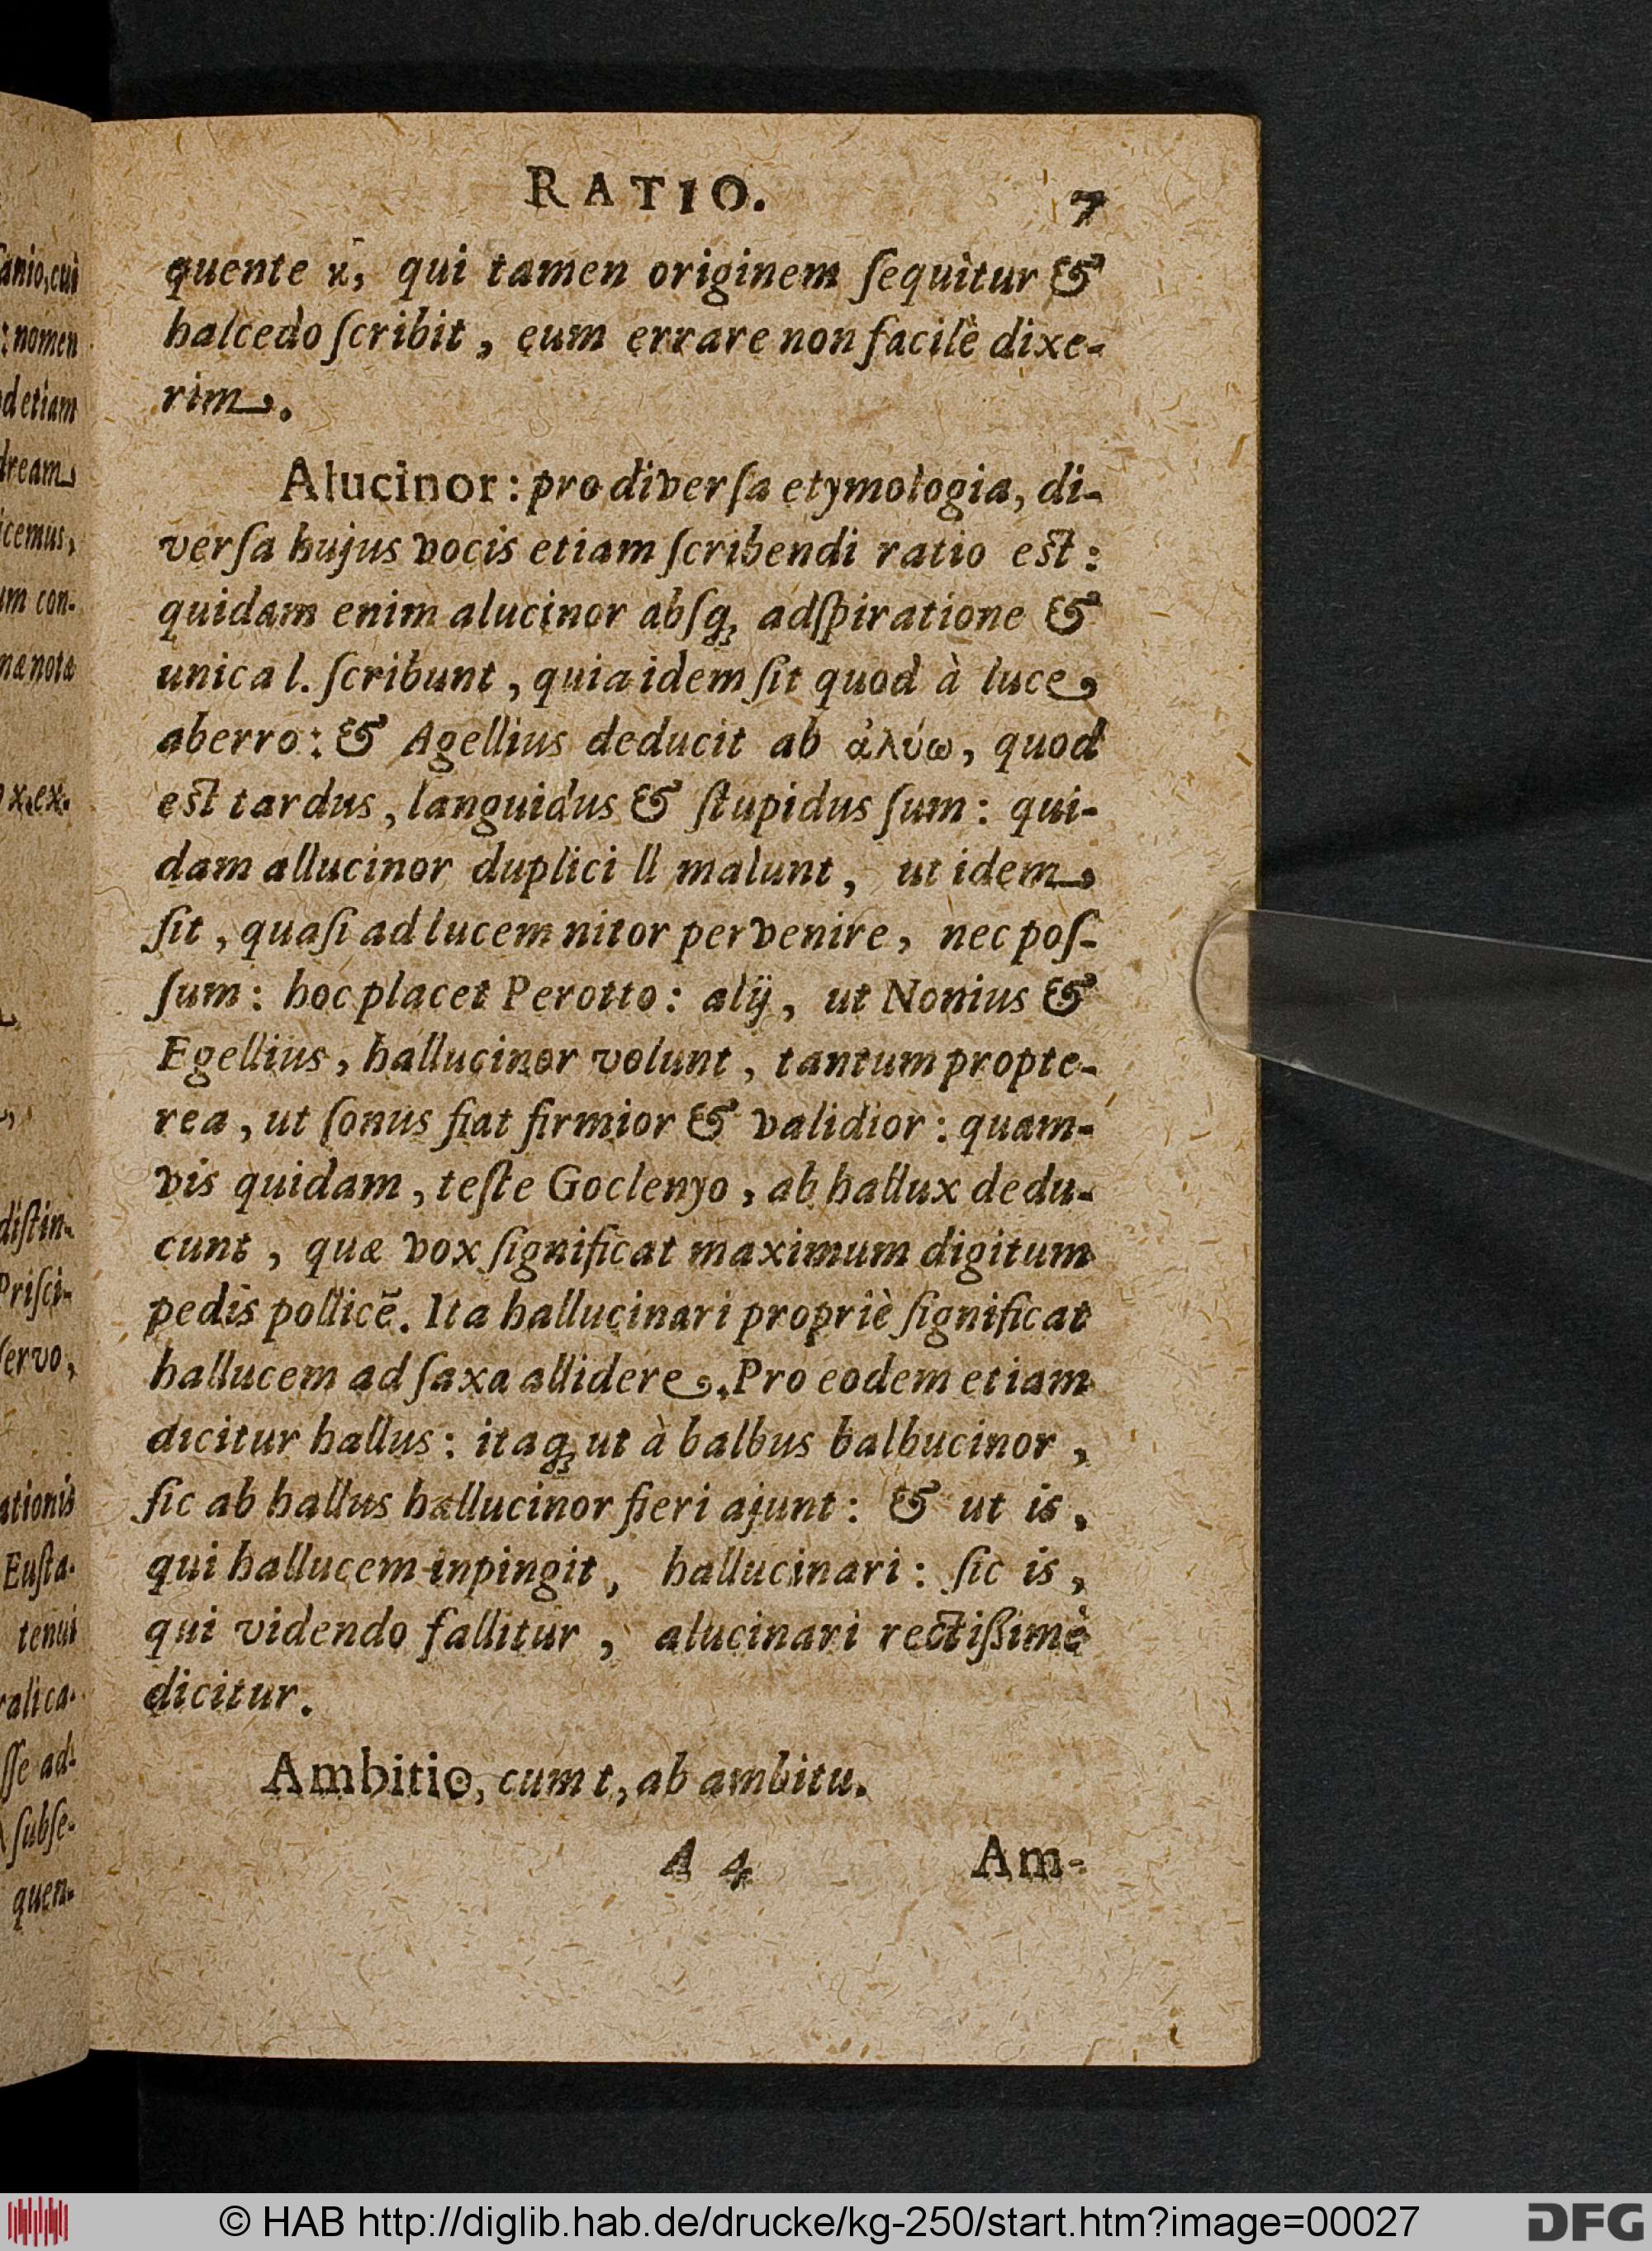 RATIO. 7
quente κ, qui tamen originem ſequitur &
halcedo ſcribit, eum errare non facilè dixe-
rim.
Alucinor: pro diverſa etymologia, di-
verſa hujus vocis etiam ſcribendi ratio est:
quidam enim alucinor absq; adſpiratione &
unica l. ſcribunt, quia idem ſit quod à luce
aberro: & Agellius deducit ab ἀλύω, quod
est tardus, languidus & ſtupidus ſum: qui-
dam allucinor duplici ll malunt, ut idem
ſit, quaſi ad lucem nitor pervenire, nec poſ-
ſum: hoc placet Perotto: alij, ut Nonius &
Egellius, hallucinor volunt, tantum propte-
rea, ut ſonus fiat firmior & validior: quam-
vis quidam, teſte Goclenyo, ab hallux dedu-
cunt, quæ vox ſignificat maximum digitum
pedis pollicẽ. Ita hallucinari propriè ſignificat
hallucem ad ſaxa allidere. Pro eodem etiam
dicitur hallus: itaq; ut à balbus balbucinor,
ſic ab hallus hallucinor fieri ajunt: & ut is,
qui hallucem inpingit, hallucinari: ſic is,
qui videndo fallitur, alucinari rectißimè
dicitur.
Ambitio, cum t, ab ambitu.
A 4 Am-
anio, cui
: nomen
d etiam
dream
icemus,
um con-
næ notæ
x, ex.
diſtin-
Priſci-
ſervo,
ationis
Euſta-
tenui
ralica-
ſſe ad-
ſubſe-
quen-
© HAB http://diglib.hab.de/drucke/kg-250/start.htm?image=00027
DFG